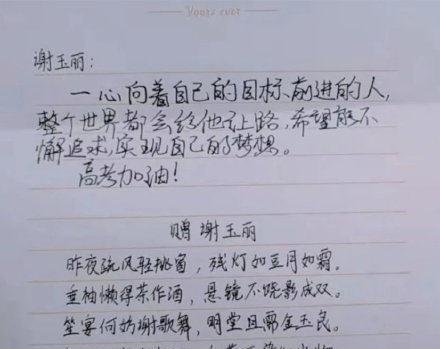 Yours ever
谢玉丽:
一心向着自己的目标前进的人,
整个世界都会给他让路,希望能不
懈追求,实现自己的梦想。
高考加油!
赠谢玉丽
昨夜疏风轻挑窗,残灯如豆月如霜。
垂袖懒得茶作酒,悬镜不晓影成双。
笙宴何妨谢歌舞,明堂且需金玉良。